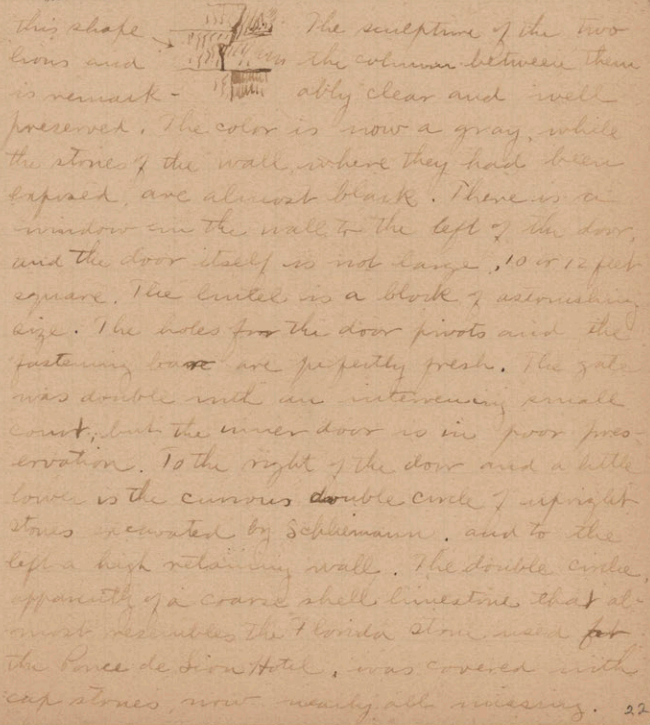 this shape The sculpture of the two
lions and the column between them
is remark- ably clear and well
preserved. The color is now a gray, while
the stones of the wall, where they had been
exposed, are almost black. There is a
window in the wall to the left of the door,
and the door itself is not large, 10 or 12 feet
square. The lintel is a block of astonishing
size. The holes for the door pivots and the
fastening bars are perfectly fresh. The gate
was double with an intervening small
court, but the inner door is in poor pres-
ervation. To the right of the door and a little
lower is the curious double circle of upright
stones excavated by Schliemann, and to the
left a high retaining wall. The double circle,
apparently of a coarse shell limestone that al-
most resembles the Florida stone used for
the Ponce de Leon Hotel, was covered with
cap stones, now nearly all missing. 22